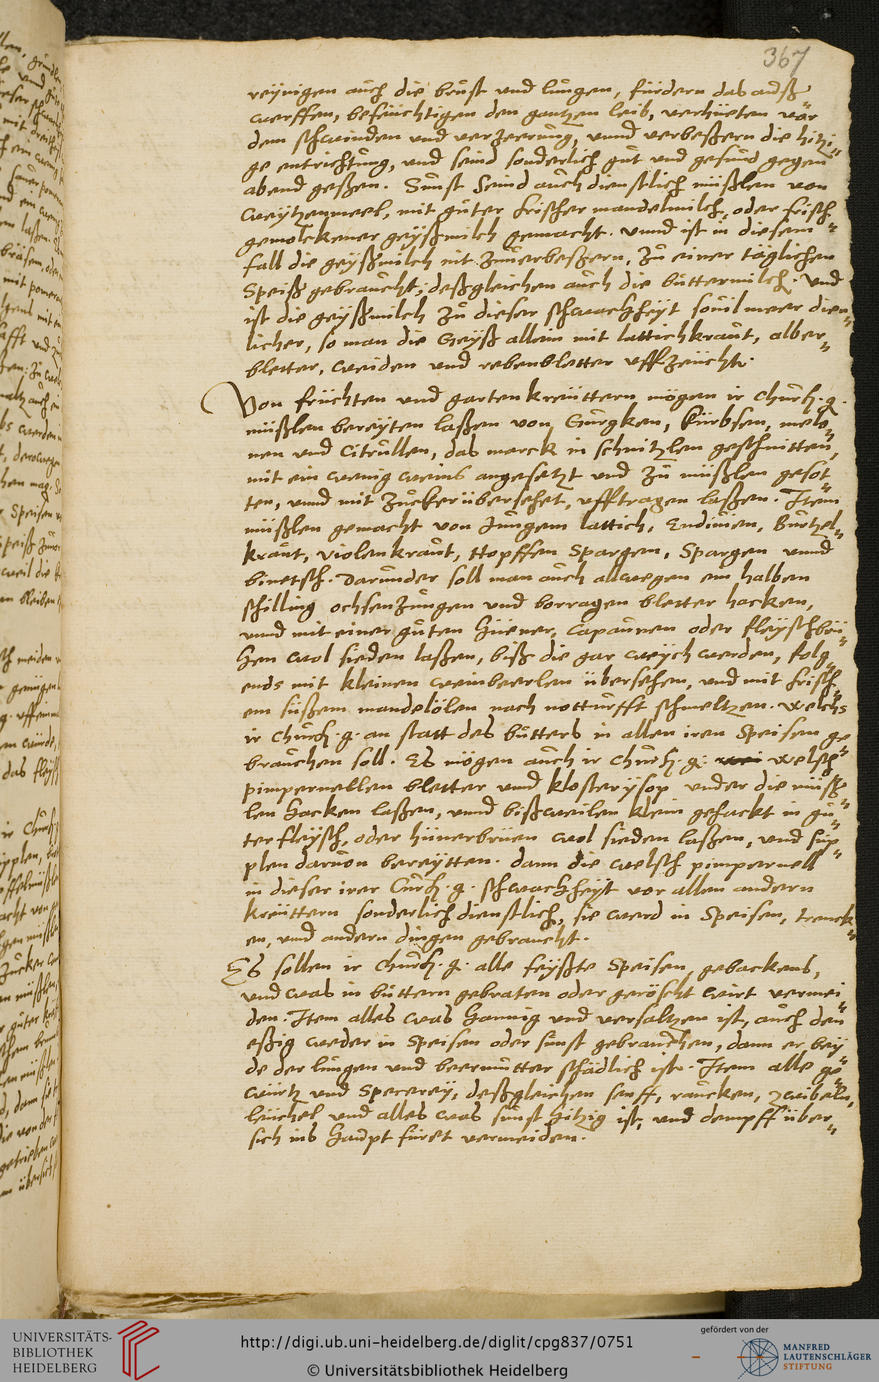 367
reynigen auch die brust vnd lungen, fürdern das auß
werffen, befeuchtigen den gantzen leib, verhüeten vor
dem schwinden vnd verzeerung, vnnd verbeßern die hitzi„
ge entrichtung, vnd seind sonderlich gut vnd gesund gegen
abend geßen. Sunst seind auch dienstlich müßlen von
weytzenmeel, mit guter frischer mandelmilch, oder frisch
gemolckener geyßmilch gemacht. vnnd ist in diesem„
fall die geyßmilch nit zuuerbeßern, zu einer täglichen
Speiß gebraucht, deßgleichen auch die buttermilch. Vnd
ist die geyßmilch zu dieser schwachheyt souil meer dien„
licher, so man die Geyß allein mit lattichkraut, alber„
bletter, weiden vnd rebenbletter vffzeücht.
Von früchten vnd gartenkreüttern mögen ir churf. g.
müßlen bereyten laßen von Gurgken, Kürbsen, melo„
nen vnd Citrullen, das marck in schnitzlen geschnitten,
mit ein wenig weins angesetzt vnd zu müßlen gesot„
ten, vnnd mit zucker übersehet, vfftragen laßen. Item
müßlen gemacht von jungem lattich, Endiuien, Burtzel„
kraut, violenkraut, Hopffen Spargen, Spargen vnnd
binetsch. Darunder soll man auch allwegen ein halben
schilling ochsenzungen vnd borragen bletter hacken,
vnnd mit einer guten hüener, Capaunen oder fleyschbrü„
hen wol sieden laßen, biß die gar weych werden, folg„
ends mit kleinen weinbeerlen übersehen, vnd mit frisch„
em süßem mandelölen nach notturfft schmeltzen. welchs
ir churf. g. an statt des butters in allen iren Speisen ge„
brauchen soll. Es mögen auch ir churf. g. welsch„
pimpernellen bletter vnd klosterysop vnder die müß„
len hacken laßen, vnnd bißweilen klein gehackt in gu„
ter fleysch, oder hünerbrüen wol sieden laßen, vnd süp„
plen daruon bereytten. dann die welsch pimpernell„
in dieser irer Curf. g. schwachheyt vor allen andern
kreüttern sonderlich dienstlich, sie werd in Speisen, tranck„
en, vnd andern dingen gebraucht.
Es sollen ir churf. g. alle feyßte Speisen, gebackens,
vnd was in buttern gebraten oder geröscht wirt vermei„
den. Item alles was hannig vnd versaltzen ist, auch den
eßig weder in Speisen oder sunst gebrauchen, dann er bey„
de der lungen vnd beermutter schädlich ist. Item alle ge„
würtz vnd Specerey, deßgleichen senff, raucken, zwibeln,
leüchel vnd alles was sunst hitzig ist, vnd dempff über„
sich ins haupt füret vermeiden.
UNIVERSITÄTS-
BIBLIOTHEK
HEIDELBERG
http://digi.ub.uni-heidelberg.de/diglit/cpg837/0751
© Universitätsbibliothek Heidelberg
gefördert von der
MANFRED
LAUTENSCHLÄGER
STIFTUNG